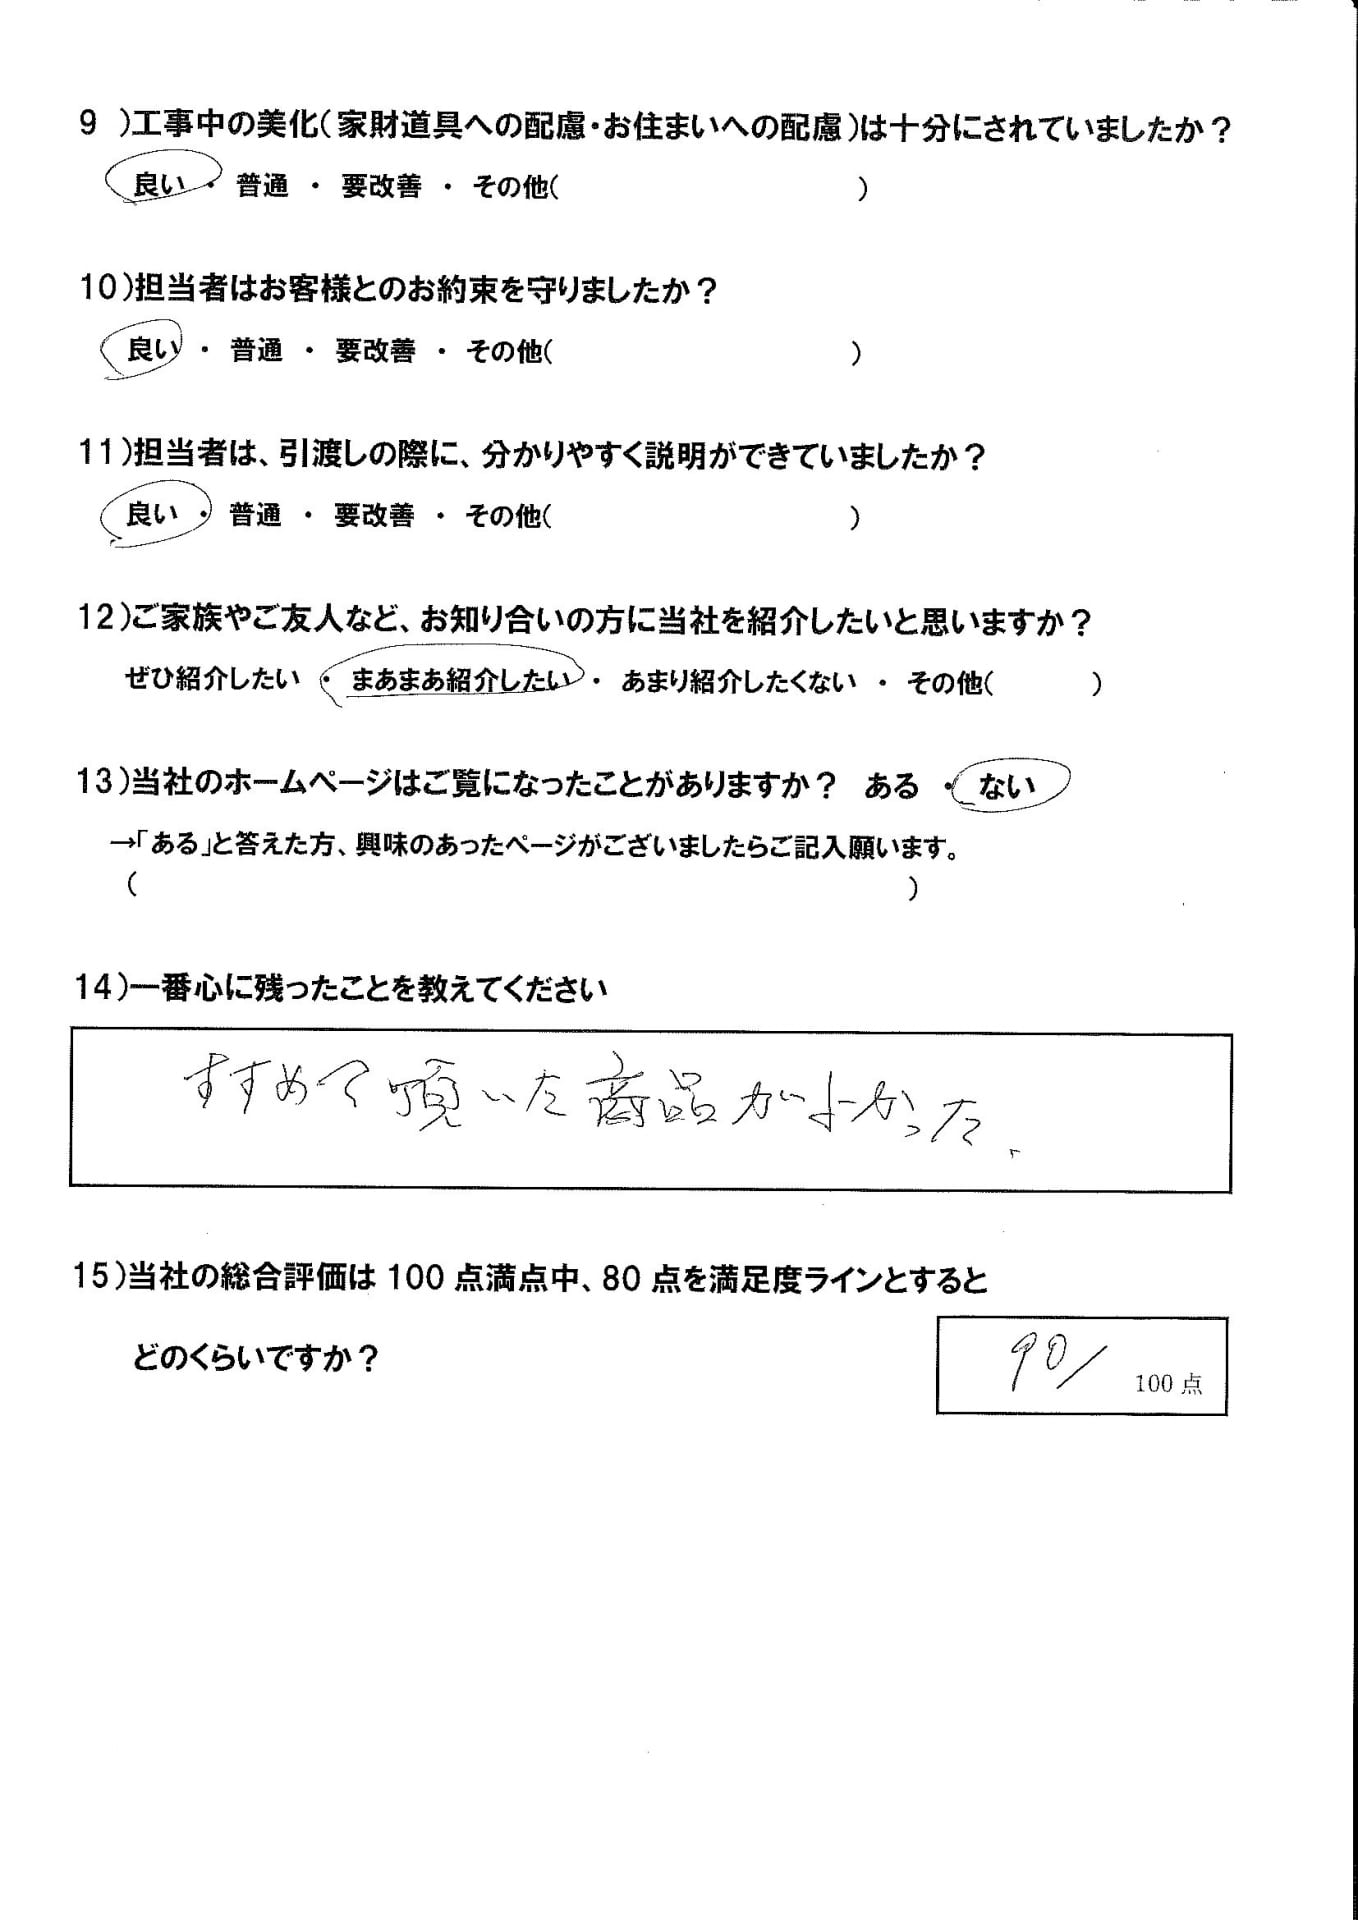 9 )工事中の美化(家財道具への配慮・お住まいへの配慮)は十分にされていましたか?
良い ・ 普通 ・ 要改善 ・ その他( )
10)担当者はお客様とのお約束を守りましたか?
良い ・ 普通 ・ 要改善 ・ その他( )
11)担当者は、引渡しの際に、分かりやすく説明ができていましたか?
良い ・ 普通 ・ 要改善 ・ その他( )
12)ご家族やご友人など、お知り合いの方に当社を紹介したいと思いますか?
ぜひ紹介したい ・ まあまあ紹介したい ・ あまり紹介したくない ・ その他( )
13)当社のホームページはご覧になったことがありますか? ある ・ ない
→「ある」と答えた方、興味のあったページがございましたらご記入願います。
( )
14)一番心に残ったことを教えてください
すすめて頂いた商品がよかった、
15)当社の総合評価は 100 点満点中、80 点を満足度ラインとすると
どのくらいですか?
90/ 100 点